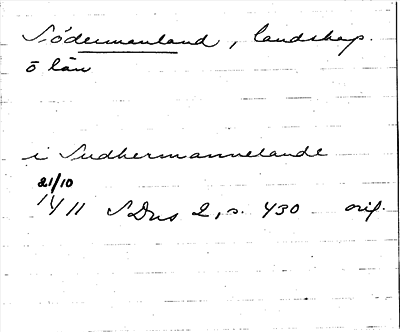 Södermanland, landskap.
ö län
i Sudhermannelande
21/10
1411 SDns 2, s. 430 orig.